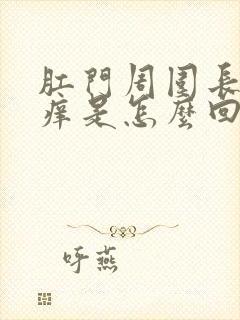 肛門周圍長
痒是怎麼回
吁燕